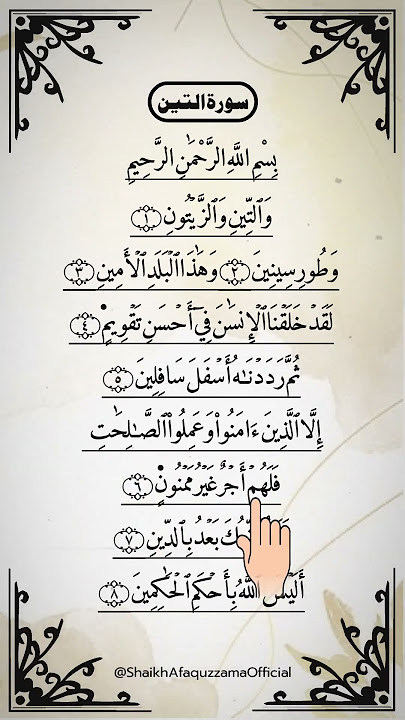 سورة التين
بِسْمِ اللَّهِ الرَّحْمَٰنِ الرَّحِيمِ
وَٱلتِّينِ وَٱلزَّيْتُونِ ۝١
وَطُورِ سِينِينَ ۝٢ وَهَٰذَا ٱلْبَلَدِ ٱلْأَمِينِ ۝٣
لَقَدْ خَلَقْنَا ٱلْإِنسَٰنَ فِىٓ أَحْسَنِ تَقْوِيمٍ ۝٤
ثُمَّ رَدَدْنَٰهُ أَسْفَلَ سَافِلِينَ ۝٥
إِلَّا ٱلَّذِينَ ءَامَنُوا۟ وَعَمِلُوا۟ ٱلصَّٰلِحَٰتِ
فَلَهُمْ أَجْرٌ غَيْرُ مَمْنُونٍ ۝٦
بَعْدُ بِٱلدِّينِ ۝٧
أَلَيْسَ ٱللَّهُ بِأَحْكَمِ ٱلْحَٰكِمِينَ ۝٨
@ShaikhAfaquzzamaOfficial